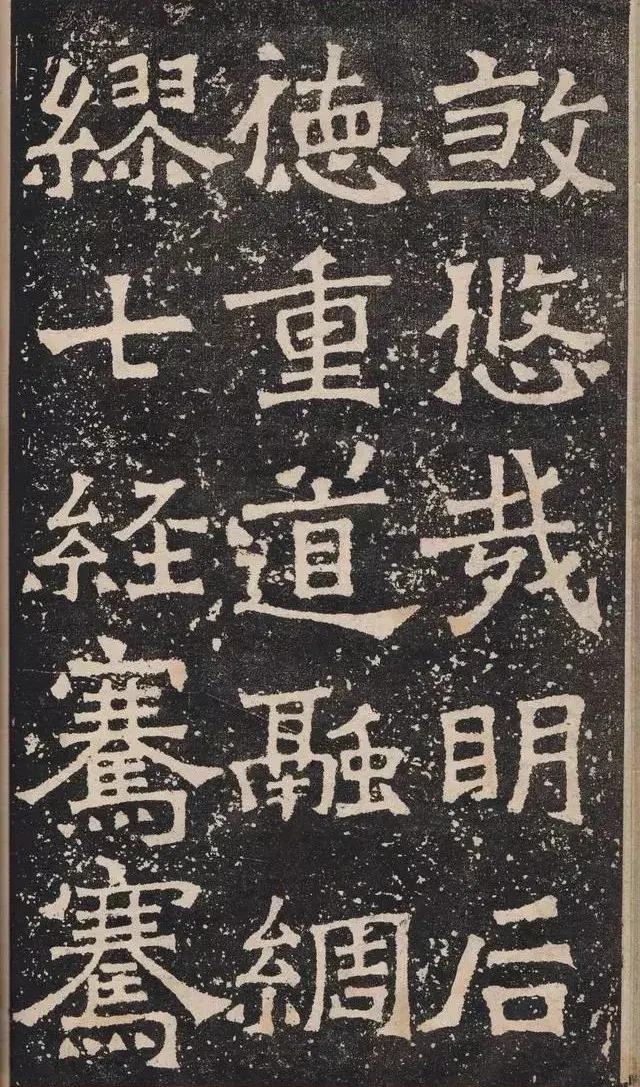 悠哉眀后
德重道融綢
繆七経騫騫